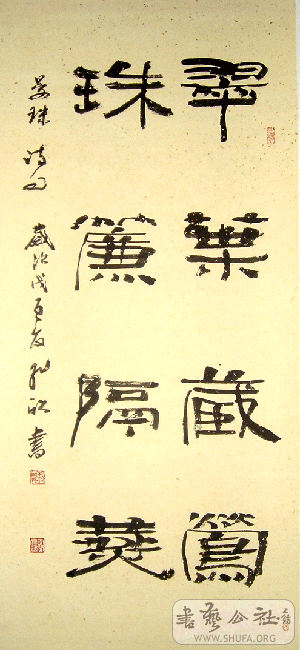 翠葉藏鶯
珠簾隔燕
晏珠詩句 歲次戊 書
書藝公社
WWW.SHUFA.ORG